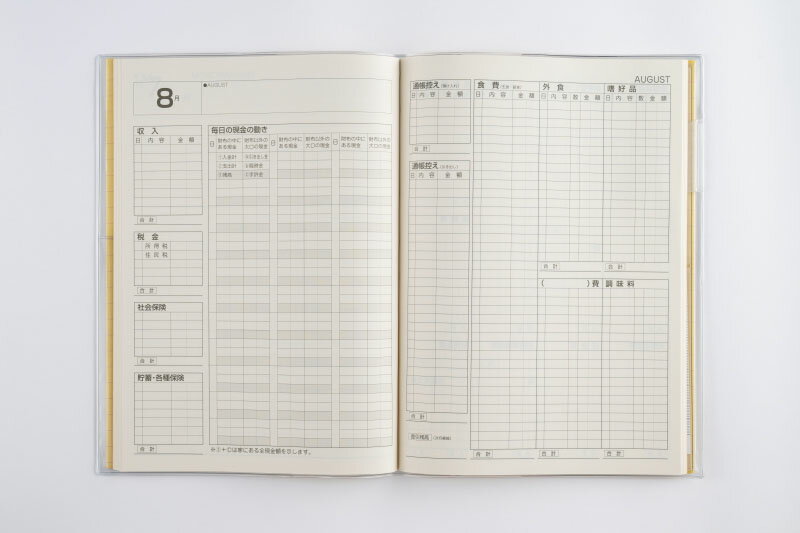 8月
●AUGUST
収入
日 内容 金額
合計
税金
所得税
住民税
合計
社会保険
合計
貯蓄・各種保険
合計
毎日の現金の動き
日 財布の中にある現金 財布以外の大口の現金 日 財布の中にある現金 財布以外の大口の現金 日 財布の中にある現金 財布以外の大口の現金
AUGUST
通帳控え
日 内容 金額
合計
通帳控え
日 内容 金額
合計
食費
日 内容 金額
合計
外食
日 内容 数 金額
合計
嗜好品
日 内容 数 金額
合計
( )費
合計
調味料
合計